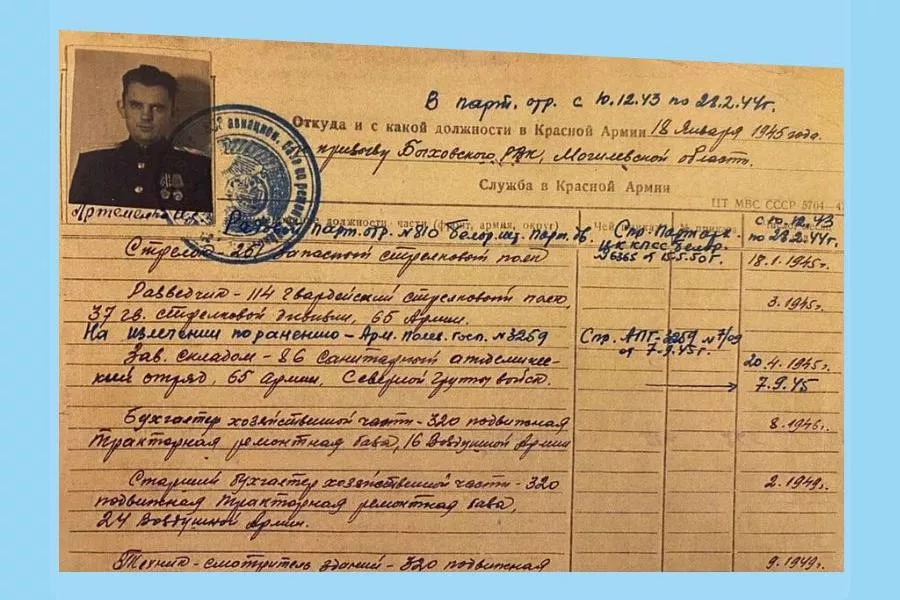 В парт. отр. с 10.12.43 по 28.2.44г.
Откуда и с какой должности в Красной Армии 18 Января 1945 года.
призыву Быховского РВК, Могилевской области.
Служба в Красной Армии
ЦТ МВС СССР 5704
авиацион. база
Рядовой парт. отр. №810 Белор. шт. парт. дв.
должности, части (фронт, армия, округ)
Чей
Спр. Партарх.
ЦК КПСС Белор.
№6365 от 15.5.50г.
с 10.12.43
по 28.2.44г.
Стрелок - 267 Запасный стрелковый полк
18.1.1945г.
Разведчик - 114 гвардейский стрелковый полк
37 гв. стрелковой дивизии, 65 Армии.
3.1945г.
На излечении по ранению - Арм. полев. госп. №3259
Спр. АПГ-3259 №7/09
от 7-9.45г.
Зав. складом - 86 санитарный
20.4.1945г.
отряд, 65 Армии, Северной группы войск.
7.9.45
Бухгалтер хозяйственной части - 320 подвижная
тракторная ремонтная база, 16 Воздушной Армии
8.1946г.
Старший бухгалтер хозяйственной части - 320
подвижная тракторная ремонтная база,
24 Воздушной Армии.
2.1949г.
Техник - смотритель зданий - 320 подвижная
9.1949г.